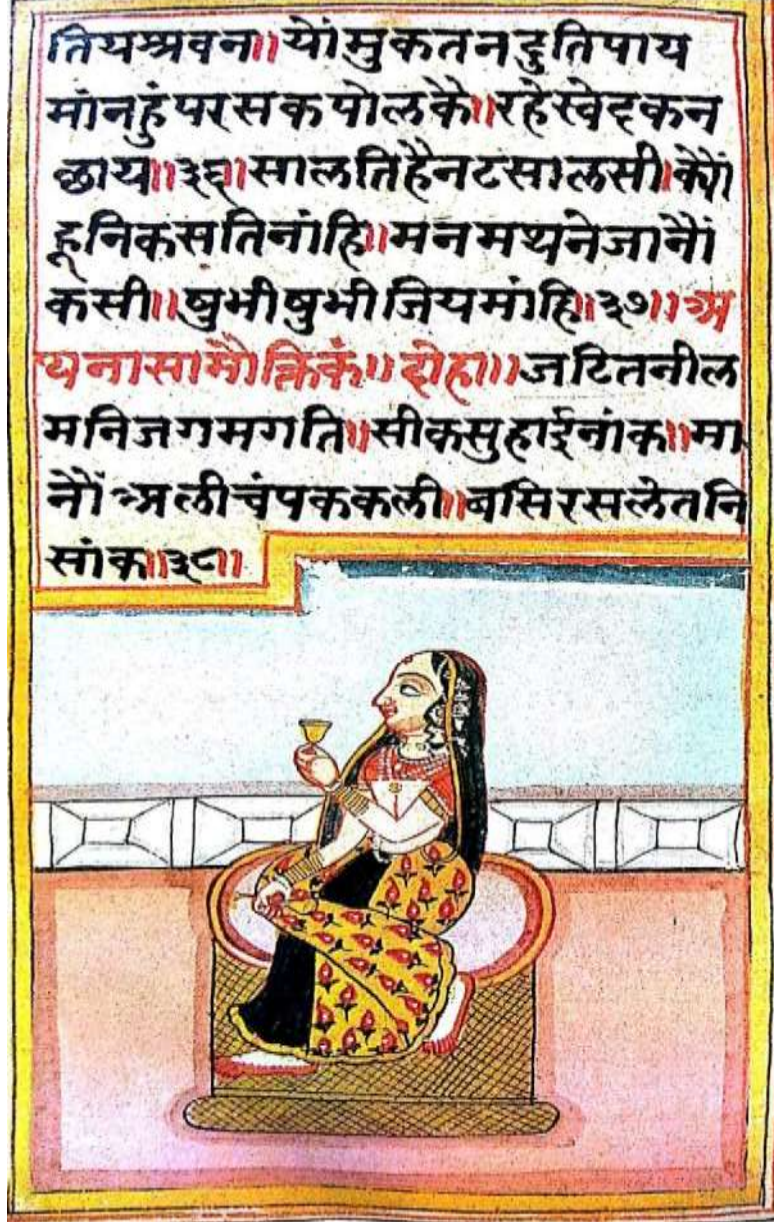 तियश्रवन॥ यौंमुकतनदुतिपाय
मांनहुंपरसकपोलकै॥ रहेस्वेदकन
छाय॥३६॥ सालतिहैनटसालसी। क्यौं
हूनिकसतिनांहि॥ मनमथनेजानौं
कसी॥ षुभीषुभीजियमांहि॥३७॥ अ
थनासामौक्तिकं॥ दोहा॥ जटितनील
मनिजगमगति॥ सीकसुहाईनांक॥ मा
नौं अलीचंपककली॥ बसिरसलेतनि
सांक॥३८॥